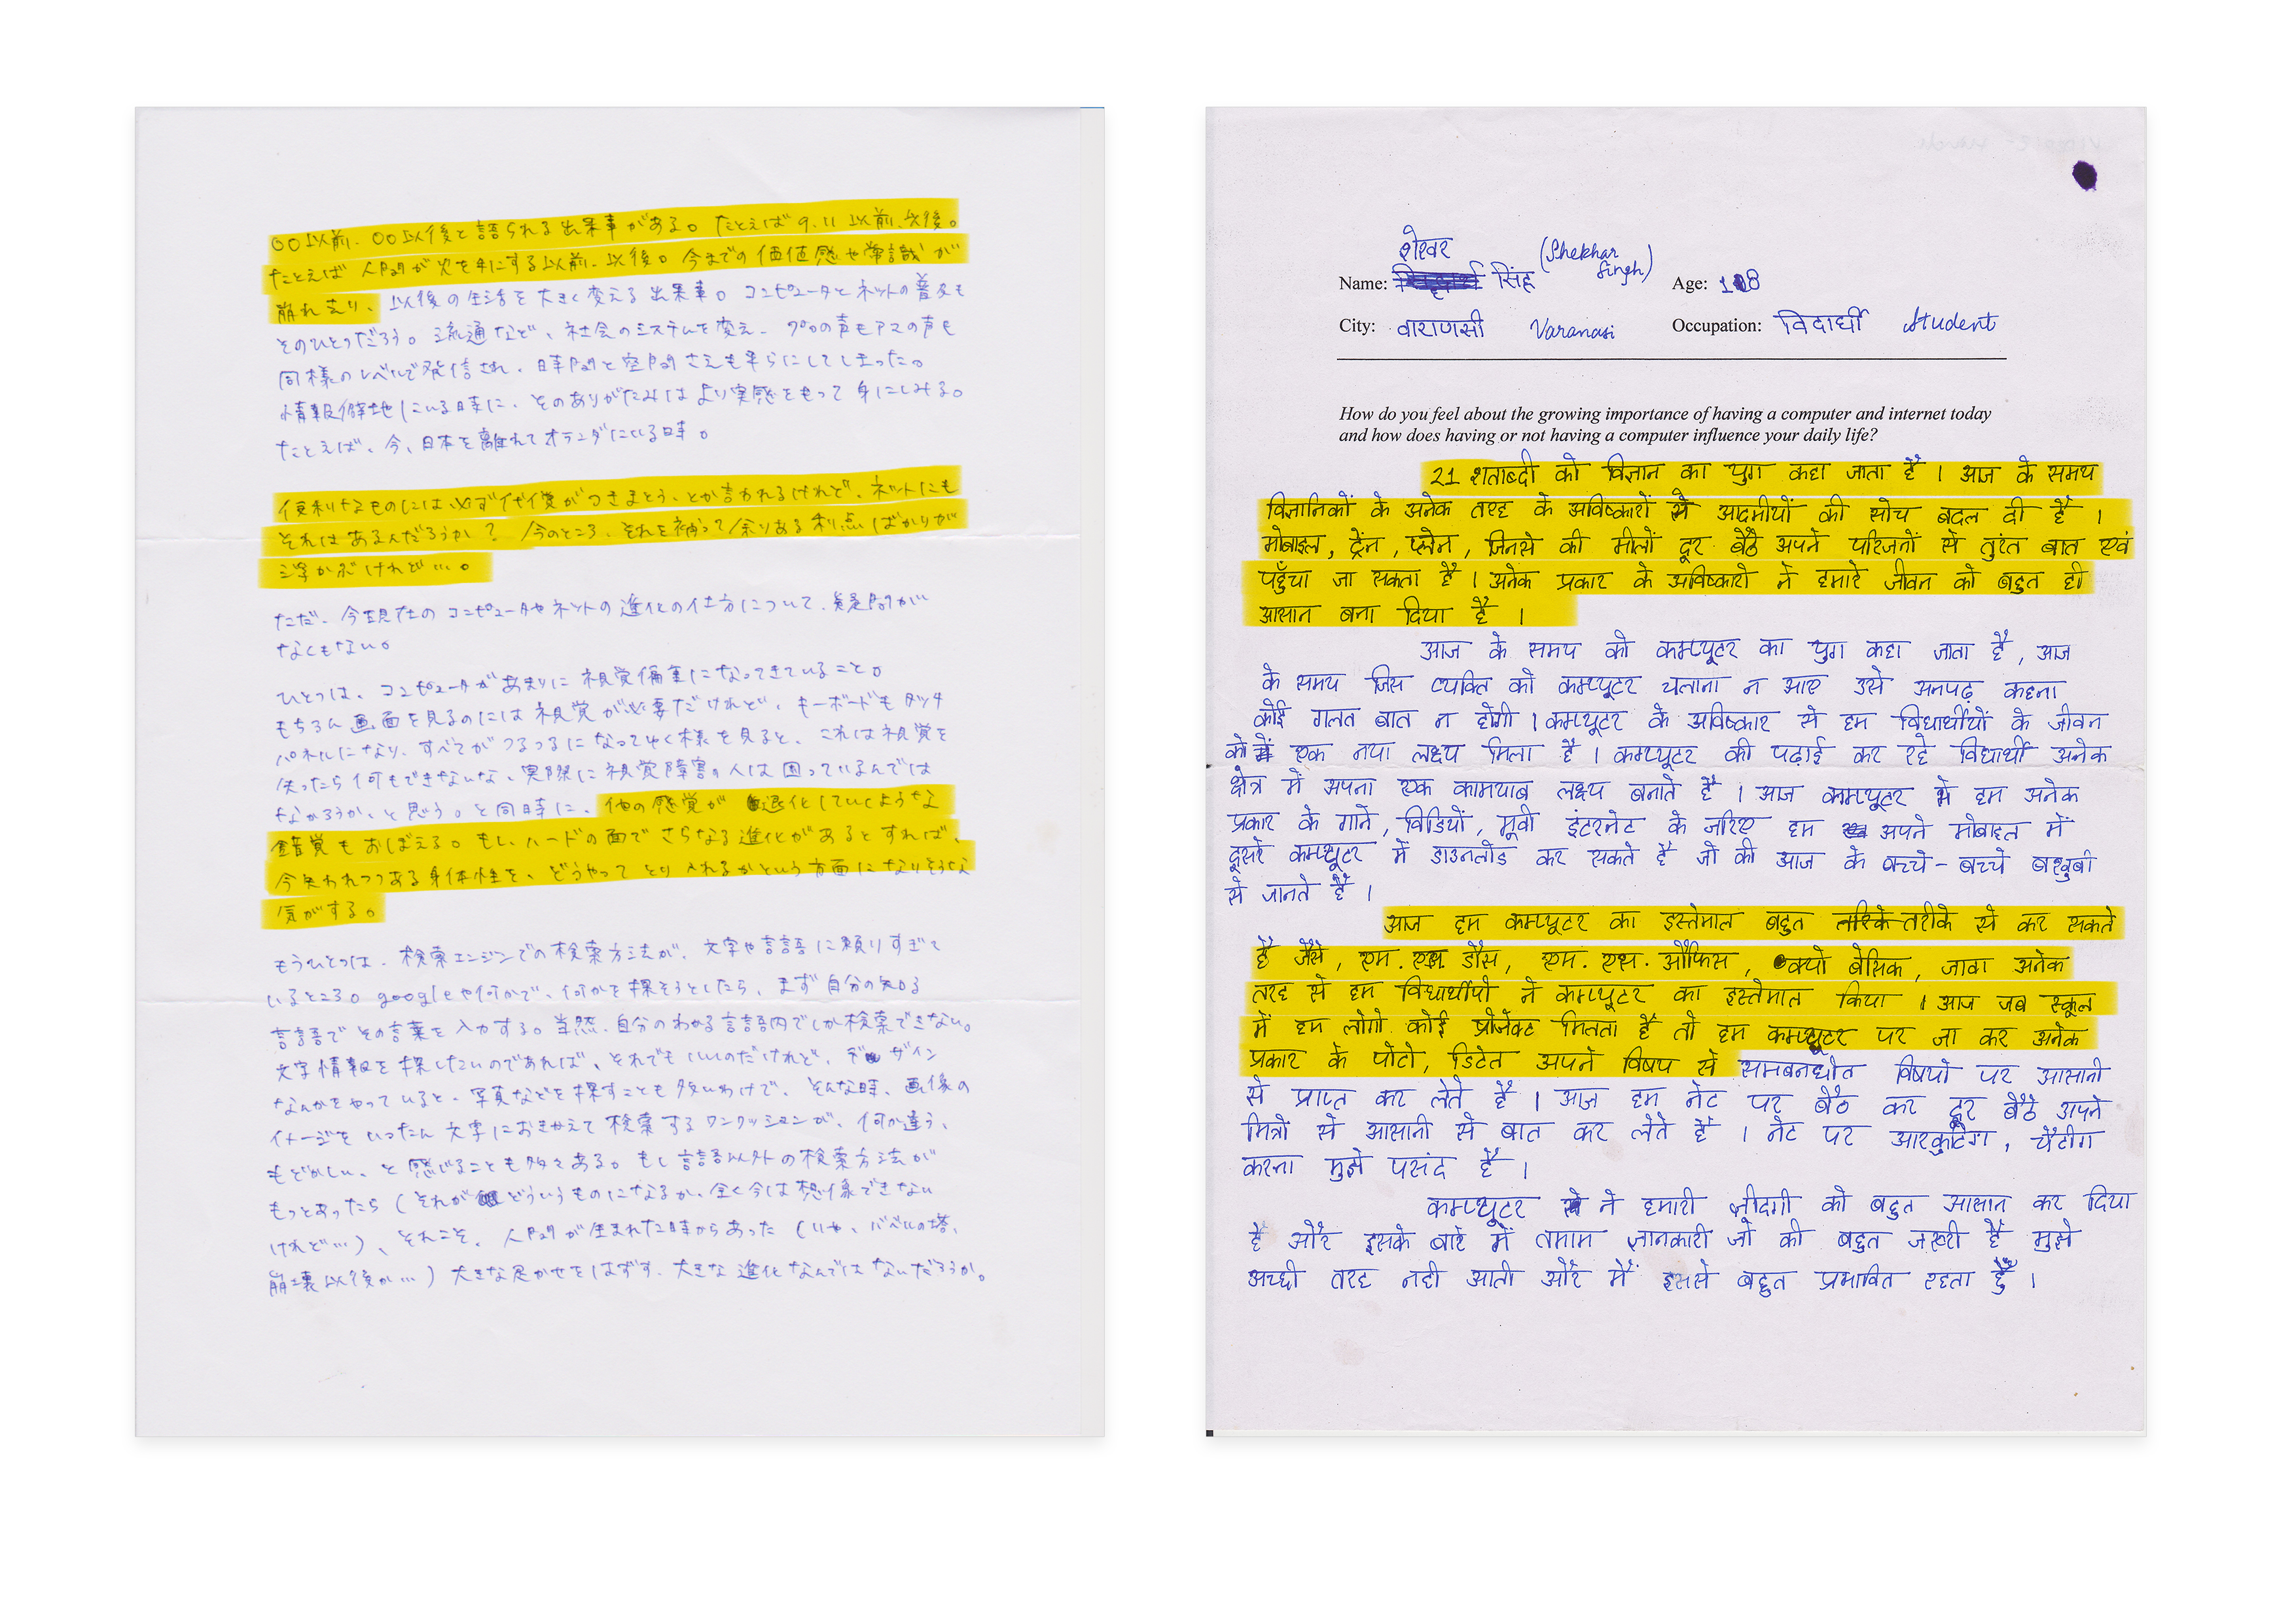 〇〇以前、〇〇以後と語られる出来事がある。たとえば9.11以前、以後。
たとえば人間が火を手にする以前、以後。今までの価値感や常識が
崩れ去り、以後の生活を大きく変える出来事。コンピュータとネットの普及も
そのひとつだろう。流通など、社会のシステムを変え、プロの声もアマの声も
同様のレベルで発信され、時間と空間さえも平らにしてしまった。
情報僻地にいる時に、そのありがたみはより実感をもって身にしみる。
たとえば、今、日本を離れてオランダにいる時。
便利なものには、必ず代償がつきまとう、とか言われるけれど、ネットにも
それはあるんだろうか？ 今のところ、それを補って余りある利点ばかりが
浮かぶけれど…。
ただ、今現在のコンピュータやネットの進化の仕方について、疑問が
なくもない。
ひとつは、コンピュータがあまりに視覚偏重になってきていること。
もちろん画面を見るのには視覚が必要だけれど、キーボードもタッチ
パネルになり、すべてがつるつるになってゆく様を見ると、これは視覚を
失ったら何もできないな、実際に視覚障害の人は困っているんでは
なかろうか、と思う。と同時に、他の感覚が退化していくような
錯覚もおぼえる。もし、ハードの面でさらなる進化があるとすれば、
今失われつつある身体性を、どうやってとり入れるかという方面になりそうな
気がする。
もうひとつは、検索エンジンでの検索方法が、文字や言語に頼りすぎて
いるところ。googleや何かで、何かを探そうとしたら、まず自分の知る
言語でその言葉を入力する。当然、自分のわかる言語内でしか検索できない。
文字情報を探したいのであれば、それでもいいのだけれど、デザイン
なんかをやっていると、写真などを探すことも多いわけで、そんな時、画像の
イメージをいったん文字におきかえて検索するワンクッションが、何か違う、
もどかしい、と感じることも多々ある。もし言語以外の検索方法が
もっとあったら（それがどういうものになるか、全く今は想像できない
けれど…）、それこそ、人間が生まれた時からあった（いや、バベルの塔、
崩壊以後か…）大きな足かせをはずす、大きな進化なんではないだろうか。
शेखर
(Shekhar
Singh)
Name: सिंह Age: 18
City: वाराणसी Varanasi Occupation: विदार्थी Student
How do you feel about the growing importance of having a computer and internet today
and how does having or not having a computer influence your daily life?
21 शताब्दी को विज्ञान का युग कहा जाता है । आज के समय
विज्ञानिकों के अनेक तरह के अविष्कारों से आदमीयों की सोच बदल दी है ।
मोबाइल, ट्रेन, प्लेन, जिनसे की मीलों दूर बैठे अपने परिजनों से तुरंत बात एवं
पहुँचा जा सकता है । अनेक प्रकार के अविष्कारो ने हमारे जीवन को बहुत ही
आसान बना दिया है ।
आज के समय को कम्प्यूटर का युग कहा जाता है, आज
के समय जिस व्यक्ति को कम्प्यूटर चलाना न आए उसे अनपढ़ कहना
कोई गलत बात न होगी । कम्प्यूटर के अविष्कार से हम विद्यार्थीयों के जीवन
को एक नया लक्ष्य मिला है । कम्प्यूटर की पढ़ाई कर रहे विद्यार्थी अनेक
क्षेत्र में अपना एक कामयाब लक्ष्य बनाते है । आज कम्प्यूटर से हम अनेक
प्रकार के गाने, विडियों, मूवी इंटरनेट के जरिए हम अपने मोबाइल में
दूसरे कम्प्यूटर में डाउनलोड कर सकते है जो की आज के बच्चे-बच्चे बखुबी
से जानते है ।
आज हम कम्प्यूटर का इस्तेमाल बहुत तरीके से कर सकते
है जैसे, एम. एस डौस, एम. एस. ऑफिस, क्यो बेसिक, जावा अनेक
तरह से हम विद्यार्थीयो ने कम्प्यूटर का इस्तेमाल किया । आज जब स्कूल
में हम लोगो कोई प्रोजेक्ट मिलता है तो हम कम्प्यूटर पर जा कर अनेक
प्रकार के पोटो, डिटेल अपने विषय से समबनधीत विषयो पर आसानी
से प्राप्त कर लेते है । आज हम नेट पर बैठ कर दूर बैठे अपने
मित्रो से आसानी से बात कर लेते है । नेट पर आरकुटिंग, चैटींग
करना मुझे पसंद है ।
कम्प्यूटर ने हमारी जींदगी को बहुत आसान कर दिया
है और इसके बारे में तमाम जानकारी जो की बहुत जरूरी है मुझे
अच्छी तरह नही आती और मैं इससे बहुत प्रभावित रहता हूँ ।